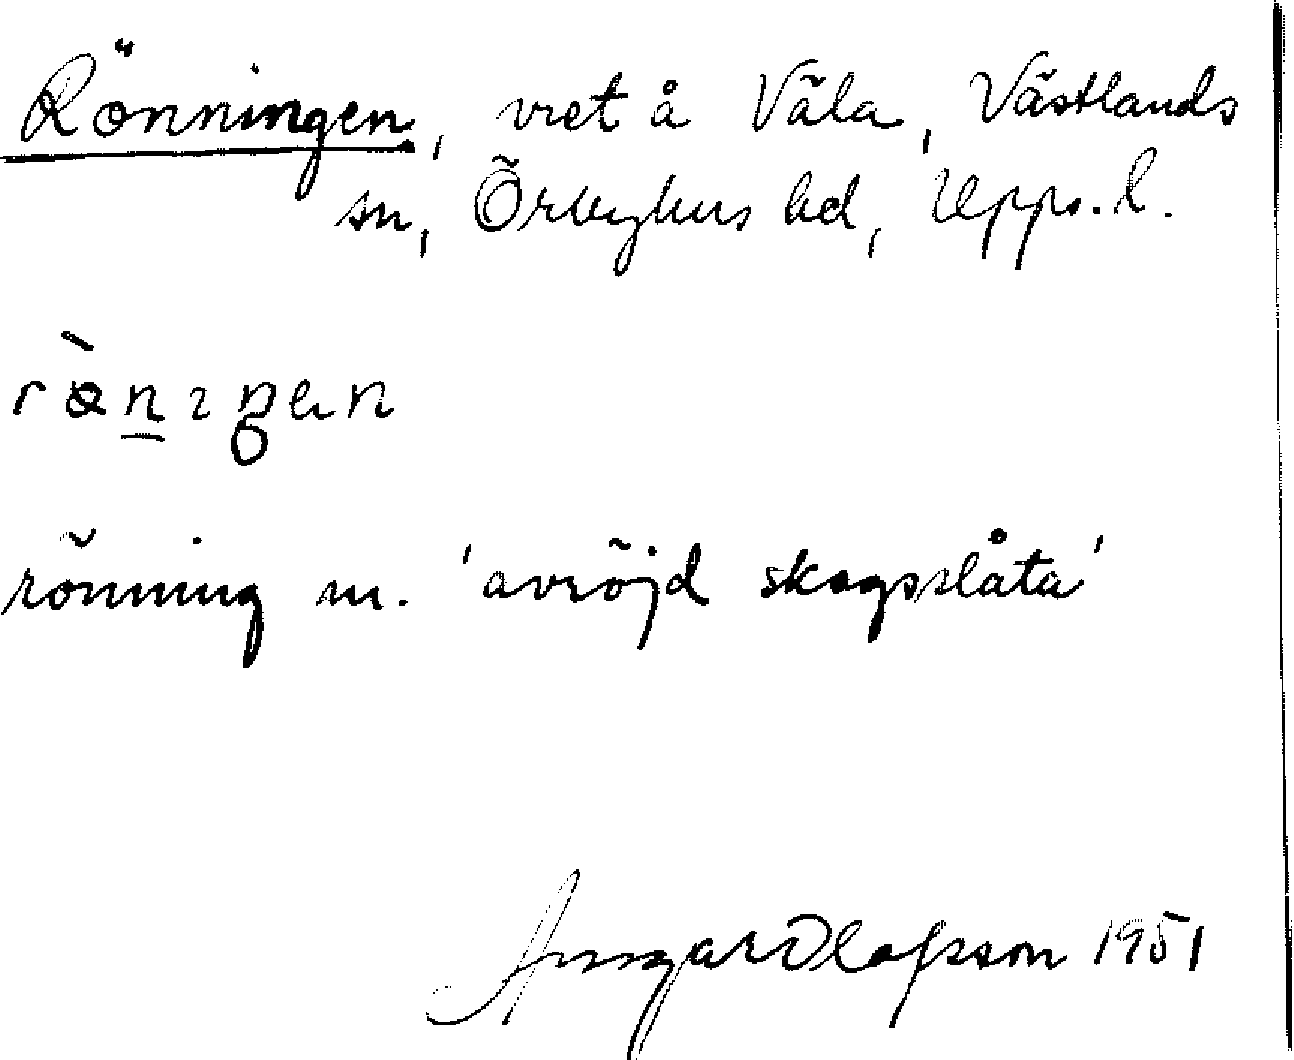 Rönningen, vret å Väla, Västlands
sn, Örbyhus hd, Upps. l.
rönning m. 'avröjd skogsslåta'
Ansgar Olofsson 1951